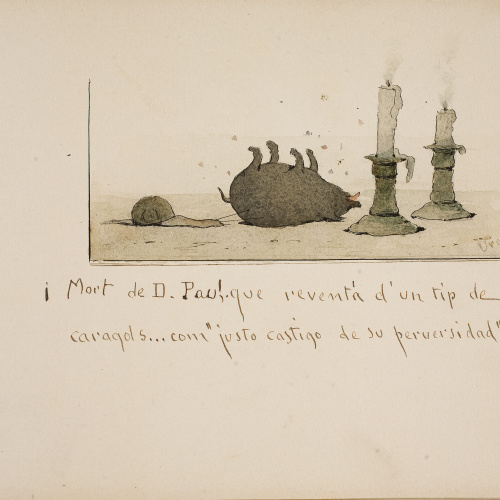 ¡ Mort de D. Paul. que reventá d'un tip de
caragols... com "justo castigo de su perversidad"